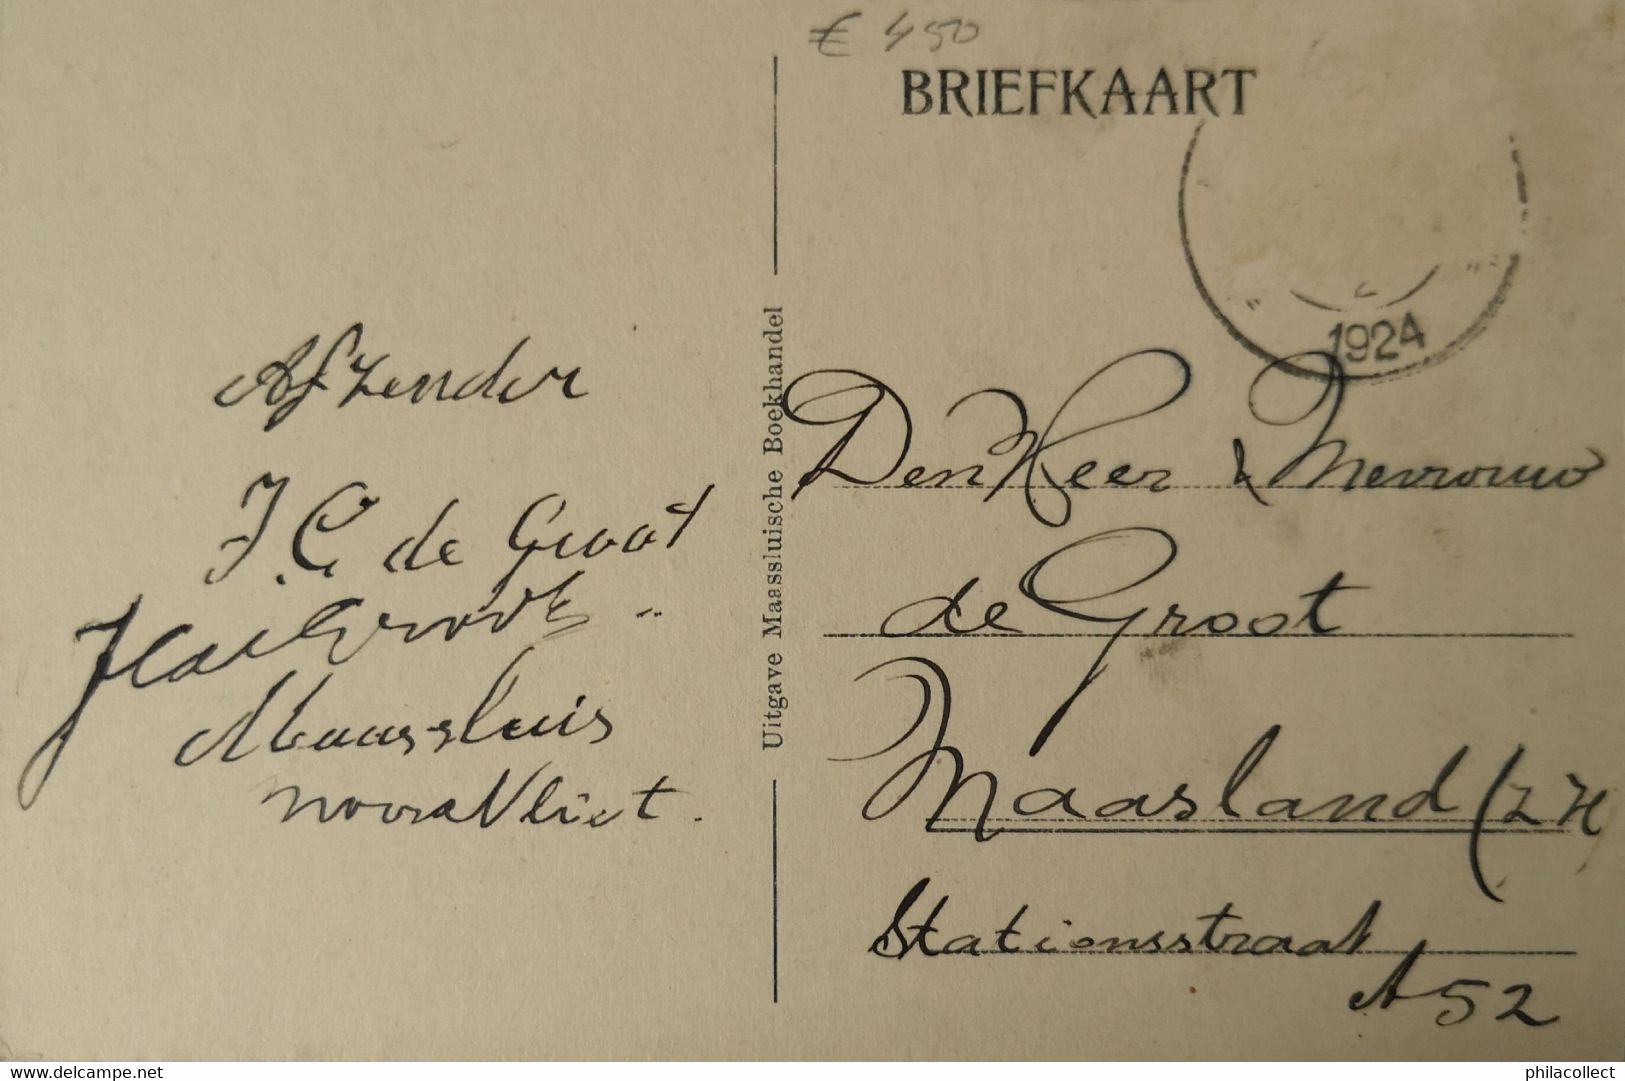 € 450
BRIEFKAART
1924
Afzender
J. C. de Groot
Maassluis
noordVliet.
Uitgave Maassluische Boekhandel
Den Heer & Mevrouw
de Groot
Maasland (ZH
Stationsstraat
A 52
www.delcampe.net
philacollect